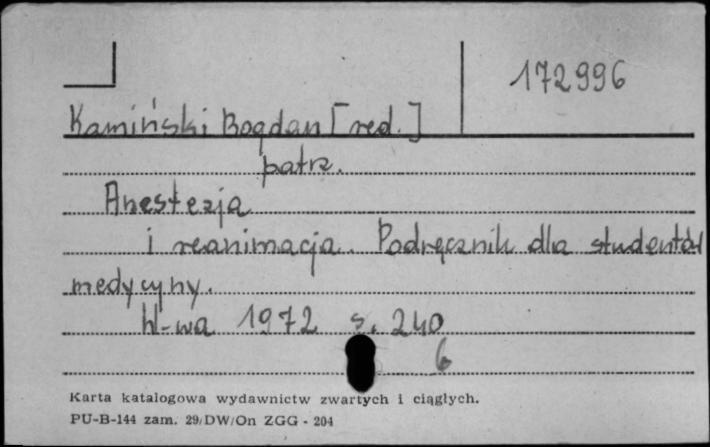 172996
Kamiński Bogdan [red.]
patrz.
Anestezja
i reanimacja. Podręcznik dla studentów
medycyny.
W-wa 1972 s. 240
6
Karta katalogowa wydawnictw zwartych i ciągłych.
PU-B-144 zam. 29/DW/On ZGG - 204